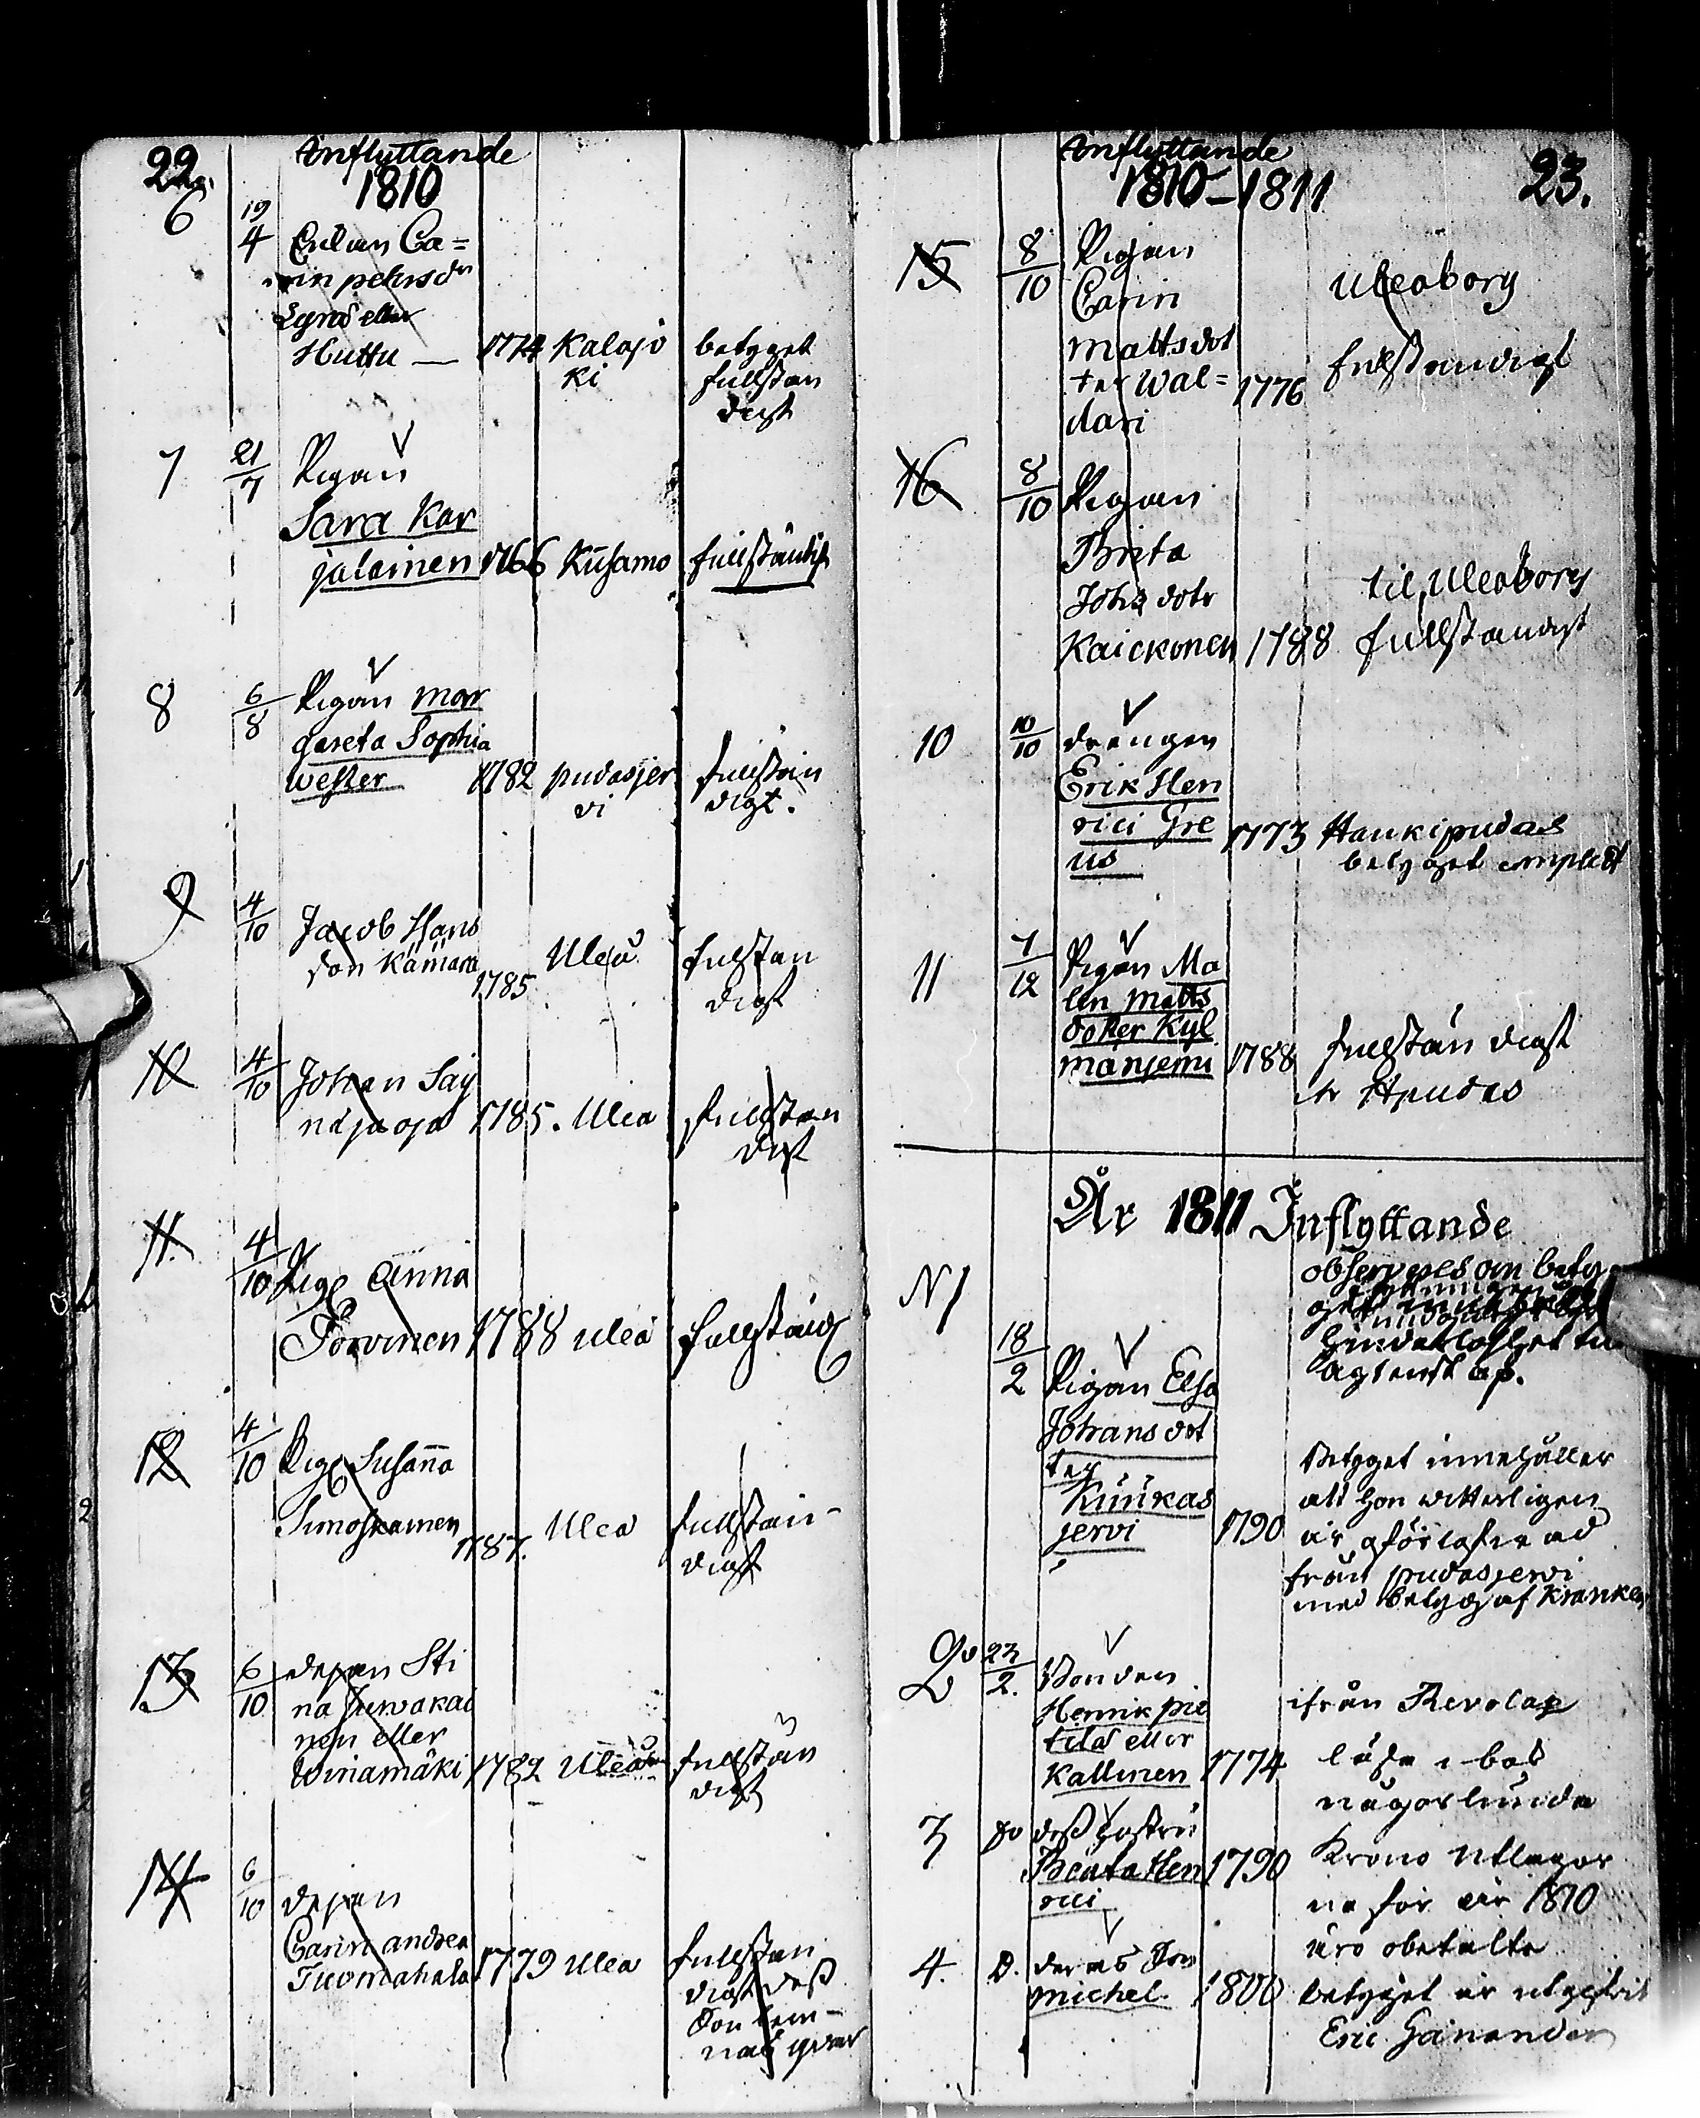 22.
Inflyttande
1810
6 19/4 Enkan Ca=
rin pehrsdr
Lyra eller
Huttu — 1774 Kalajo betyget
ki fullstän
digt
7 21/7 Pigan
Sara Kar
jalainen 1766 Kusamo fullständigt
8 6/8 Pigan Mar
gareta Sophia
Wester 1782 pudasjer fullstän
vi digt.
9 4/10 Jacob Hans
son Kämärä 1785 Uleå fullstän
digt
10 4/10 Johan Säy
näjäoja 1785. Uleå fullstän
digt
11. 4/10 Pig. Anna
Torvinen 1788 Uleå fullständ
12 4/10 Pig. Susanna
Simoskainen 1787. Uleå fullstän-
digt
13 6/10 depan Sti
na Juwakai
nen eller
Winamäki 1782 Uleå fullstän
digt
14 6/10 depan
Carin andrea
Tuomahala 1779 Uleå fullstän
digt dess
Son lem-
nas qvar
Inflyttande
1810-1811 23.
15 8/10 Pigan
Carin
Mattsdot
ter Wal=
dari 1776 Uleåborg
fullständigt
16 8/10 Pigan
Brita
Johs dotr
Kaickonen 1788 til Uleåborg
fullständigt
10 10/10 drängen
Erik Hen
rici Gre
us 1773 Haukipudas
betyget complett
11 7/12 Pigan Ma
lin Matts
dotter Kyl
mänjemi 1788 fullständigt
fr Hpudas
År 1811 Inflyttande
observeras om betyg
hinderlöshet til
ägtenskap.
N 1 18/2 Pigan Elsa
Johansdot
ter
Kurikas
jervi 1790
Betyget innehåller
att hon witterligen
är oförlofwad
från pudasjerwi
med betyg af Kranken
2 23/2. Bonden
Henrik pie
tilä eller
Kallinen 1774
ifrån Revolax
läsa i bok
någorlunda
3 do dess hustru
Beata Hen
rici 1790
Krono utlagor
na för år 1810
äro obetalte
4. D. deras Son
michel. 1800 betyget är utgifvit
Eric Ganander